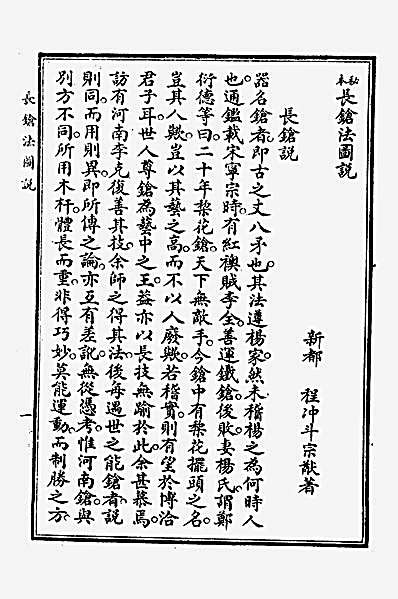 秘本長鎗法圖說
新都　程冲斗宗猷著
長鎗說
器名鎗者。即古之丈八矛也。其法遵楊家。然未稽楊之為何時人
也。通鑑載宋寧宗時。有紅襖賊李全善運鐵鎗。後敗。妻楊氏謂鄭
衍德等曰。二十年梨花鎗。天下無敵手。今鎗中有梨花擺頭之名。
豈其人歟。豈以其藝之高。而不以人廢歟。若稽實。則有望於博洽
君子耳。世人尊鎗為藝中之王。葢亦以長技無踰於此。余甚慕焉。
訪有河南李克復善其技。余師之得其法。後每遇世之能鎗者。說
則同。而用則異。即所傳之論。亦互有差訛。無從憑考。惟河南鎗。與
別方不同。所用木杆。體長而重。非得巧妙。莫能運動。而制勝之方。
長鎗法圖說
一